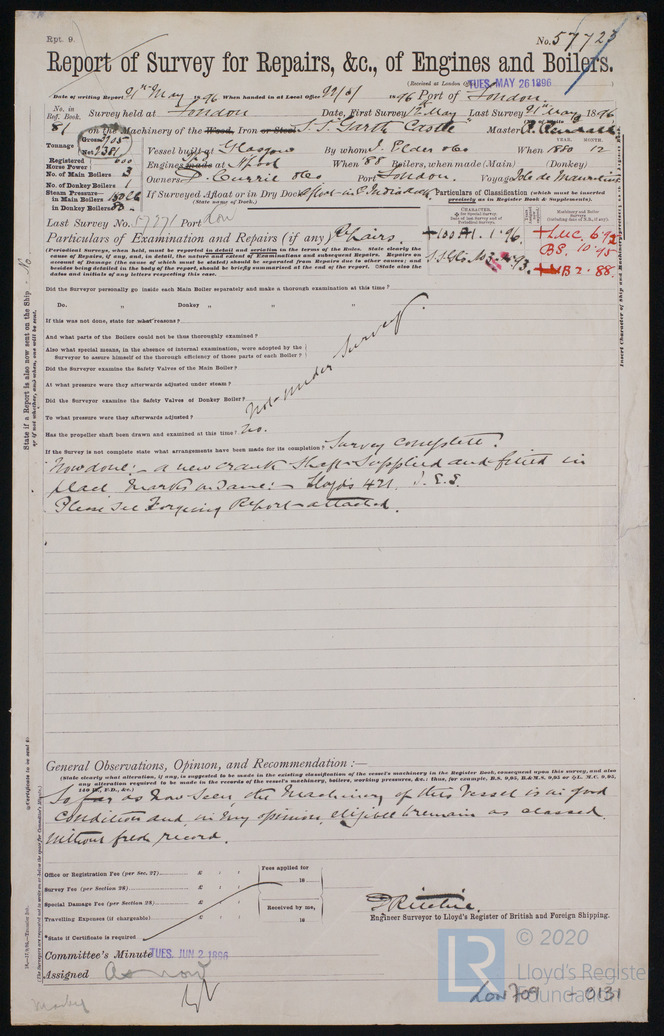 Rpt. 9.
No. 57723
Report of Survey for Repairs, &c., of Engines and Boilers.
(Received at London
TUES. MAY 26 1896
Date of writing Report 21st May 1896 When handed in at Local Office 1896 Port of London
No. in Reg. Book. Survey held at London Date, First Survey May Last Survey 21st May 1896
81 on the Machinery of the Wood, Iron or Steel S.S. "Garth Castle" Master
Tonnage Gross 3705 Net 2381
Vessel built at Glasgow By whom J. Elder & Co When 1880 12
Registered Horse Power
Engines made at When '88 Boilers, when made (Main) (Donkey)
No. of Main Boilers 3
No. of Donkey Boilers 1
Owners D. Currie & Co Port London. Voyage
Steam Pressure in Main Boilers
in Donkey Boilers
If Surveyed Afloat or in Dry Dock Afloat in
(State name of Dock.)
Particulars of Classification (which must be inserted precisely as in Register Book & Supplements).
Last Survey No. Port Lon
Particulars of Examination and Repairs (if any) Repairs.
+100A1. 1.96.
+LMC. 6.92
BS. 10.95
+NB 2.88.
(Periodical Surveys, when held, must be reported in detail and seriatim in the terms of the Rules. State clearly the
cause of Repairs, if any, and, in detail, the nature and extent of Examinations and subsequent Repairs. Repairs on
account of Damage (the cause of which must be stated) should be separated from Repairs due to other causes; and
besides being detailed in the body of the report, should be briefly summarised at the end of the report. State also the
dates and initials of any letters respecting this case.
Did the Surveyor personally go inside each Main Boiler separately and make a thorough examination at this time?
Do. " Donkey " " "
If this was not done, state for what reasons?
And what parts of the Boilers could not be thus thoroughly examined?
Also what special means, in the absence of internal examination, were adopted by the
Surveyor to assure himself of the thorough efficiency of those parts of each Boiler?
Did the Surveyor examine the Safety Valves of the Main Boiler?
At what pressure were they afterwards adjusted under steam?
Did the Surveyor examine the Safety Valves of Donkey Boiler?
To what pressure were they afterwards adjusted?
Not under Survey.
Has the propeller shaft been drawn and examined at this time? No.
If the Survey is not complete state what arrangements have been made for its completion? Survey complete.
Now done:- a new crank shaft supplied and fitted in
place. Marks on same:- Lloyd's 421. J.E.S.
Please see Forging Report attached.
State if a Report is also now sent on the Ship No.
General Observations, Opinion, and Recommendation:—
(State clearly what alteration, if any, is suggested to be made in the existing classification of the vessel's machinery in the Register Book, consequent upon this survey, and also
any alteration required to be made in the records of the vessel's machinery, boilers, working pressures, &c.; thus, for example, B.S. 9,95, B.&M.S. 9,95 or L.M.C. 9,95,
140 lb., F.D., &c.)
So far as now seen, the Machinery of this Vessel is in good
condition and in my opinion, eligible to remain as classed
without fresh record.
Office or Registration Fee (per Sec. 27) £ : :
Survey Fee (per Section 28) £ : :
Special Damage Fee (per Section 28) £ : :
Travelling Expenses (if chargeable) £ : :
Fees applied for
18
Received by me,
18
*State if Certificate is required
D Ritchie.
Engineer Surveyor to Lloyd's Register of British and Foreign Shipping.
Committee's Minute TUES. JUN 2 1896
Assigned As now
© 2020
LR
Lloyd's Register
Foundation
LON 709 - 0131